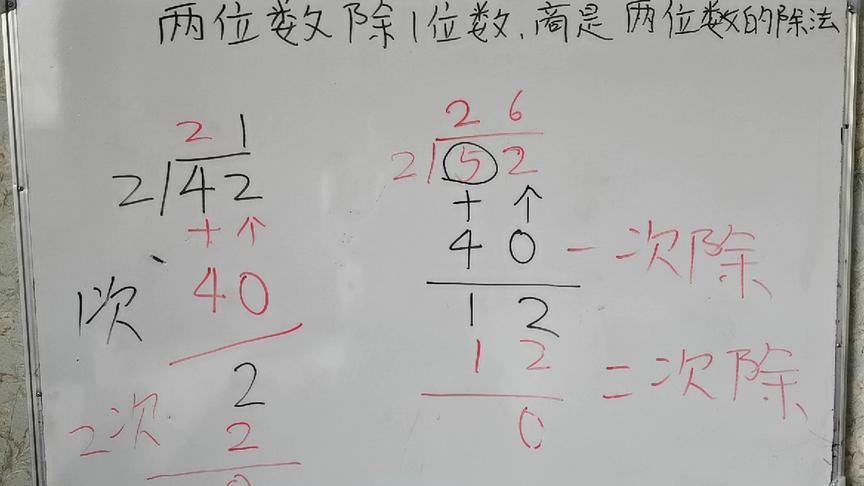 两位数除1位数,商是两位数的除法
21
2)42
十个
40
1次
2
2次 2
0
26
2)52
十个
40 一次除
12
12 二次除
0